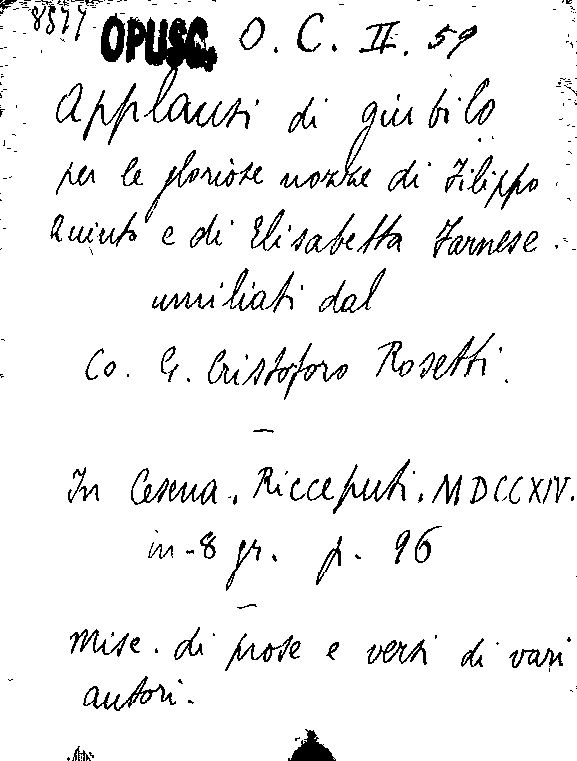 8577 OPUSC. O. C. II. 59
Applausi di giubilo
per le gloriose nozze di Filippo
Quinto e di Elisabetta Farnese.
umiliati dal
Co. G. Cristoforo Rosetti.
—
In Cesena, Ricceputi, MDCCXIV.
in-8 gr. p. 96
—
Misc. di prose e versi di vari
autori.